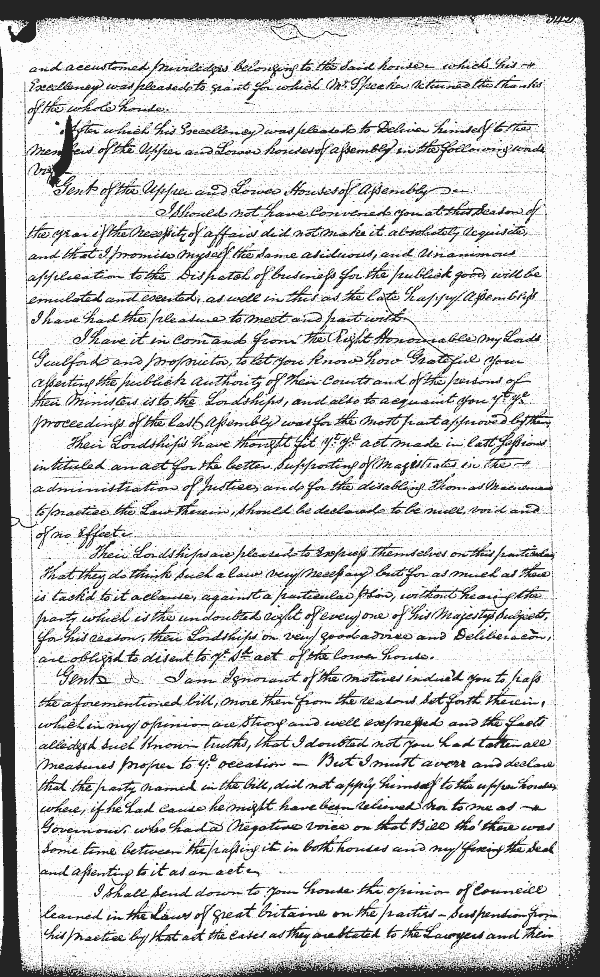 and accustomed priviledges belonging to the said house which his
Excellency was pleased to grant for which Mr. Speaker returned the thanks
of the whole house.
After which his Excellency was pleased to Deliver himself to the
members of the Upper and Lower houses of assembly in the following words
Gent of the Upper and Lower Houses of Assembly
I should not have convened you at this Season of
the year if the necessity of affairs did not make it absolutely requisite,
and that I promise myself the same asiduous, and unanimous
application to the Dispatch of business for the publick good, will be
emulated and exerted, as well in this as the late happy Assemblys
I have had the pleasure to meet and part with
I have it in comand from the Right Honourable my Lords
Guilford and proprietor, to let you know how Grateful your
aserting the publick authority of their Courts and of the persons of
their Ministers is to the Lordships, and also to acquaint you yt. ye.
proceedings of the last Assembly was for the most part approved by them
Their Lordships have thought fit yt. ye. act made in last Sessions
intituled an act for the better supporting of Magistrates in the
administration of Justice, and for the disabling Thomas Macnemara
to practice the Law therein, should be declared to be null, void and
of no Effect.
Their Lordships are pleased to Express themselves on this particular
That they do think such a law very necessary but for as much as there
is tack'd to it a clause, against a particular pson, without hearing the
party which is the undoubted right of every one of his Majestys Subjects,
for his reason, their Lordships on very good advice and Deliberacon,
are obliged to disent to ye. Sd. act of the lower house.
Gent I am Ignorant of the motives induc'd you to pass
the aforementioned bill, more then from the reasons set forth therein,
which in my opinion are Strong and well expressed and the facts
alledged such known truths, that I doubted not you had taken all
measures proper to ye. occasion — But I must averr and declare
that the party named in the bill, did not apply himself to the upper house,
where, if he had cause he might have been releived nor to me as
Governour, who had a Negative voice on that Bill tho' there was
Some time between the passing it in both houses and my fixing the Seal
and assenting to it as an act
I shall Send down to your house the opinion of Councill
learned in the Laws of great britaine on the partys Suspension from
his practice by that act the cases as they are stated to the Lawyers and their